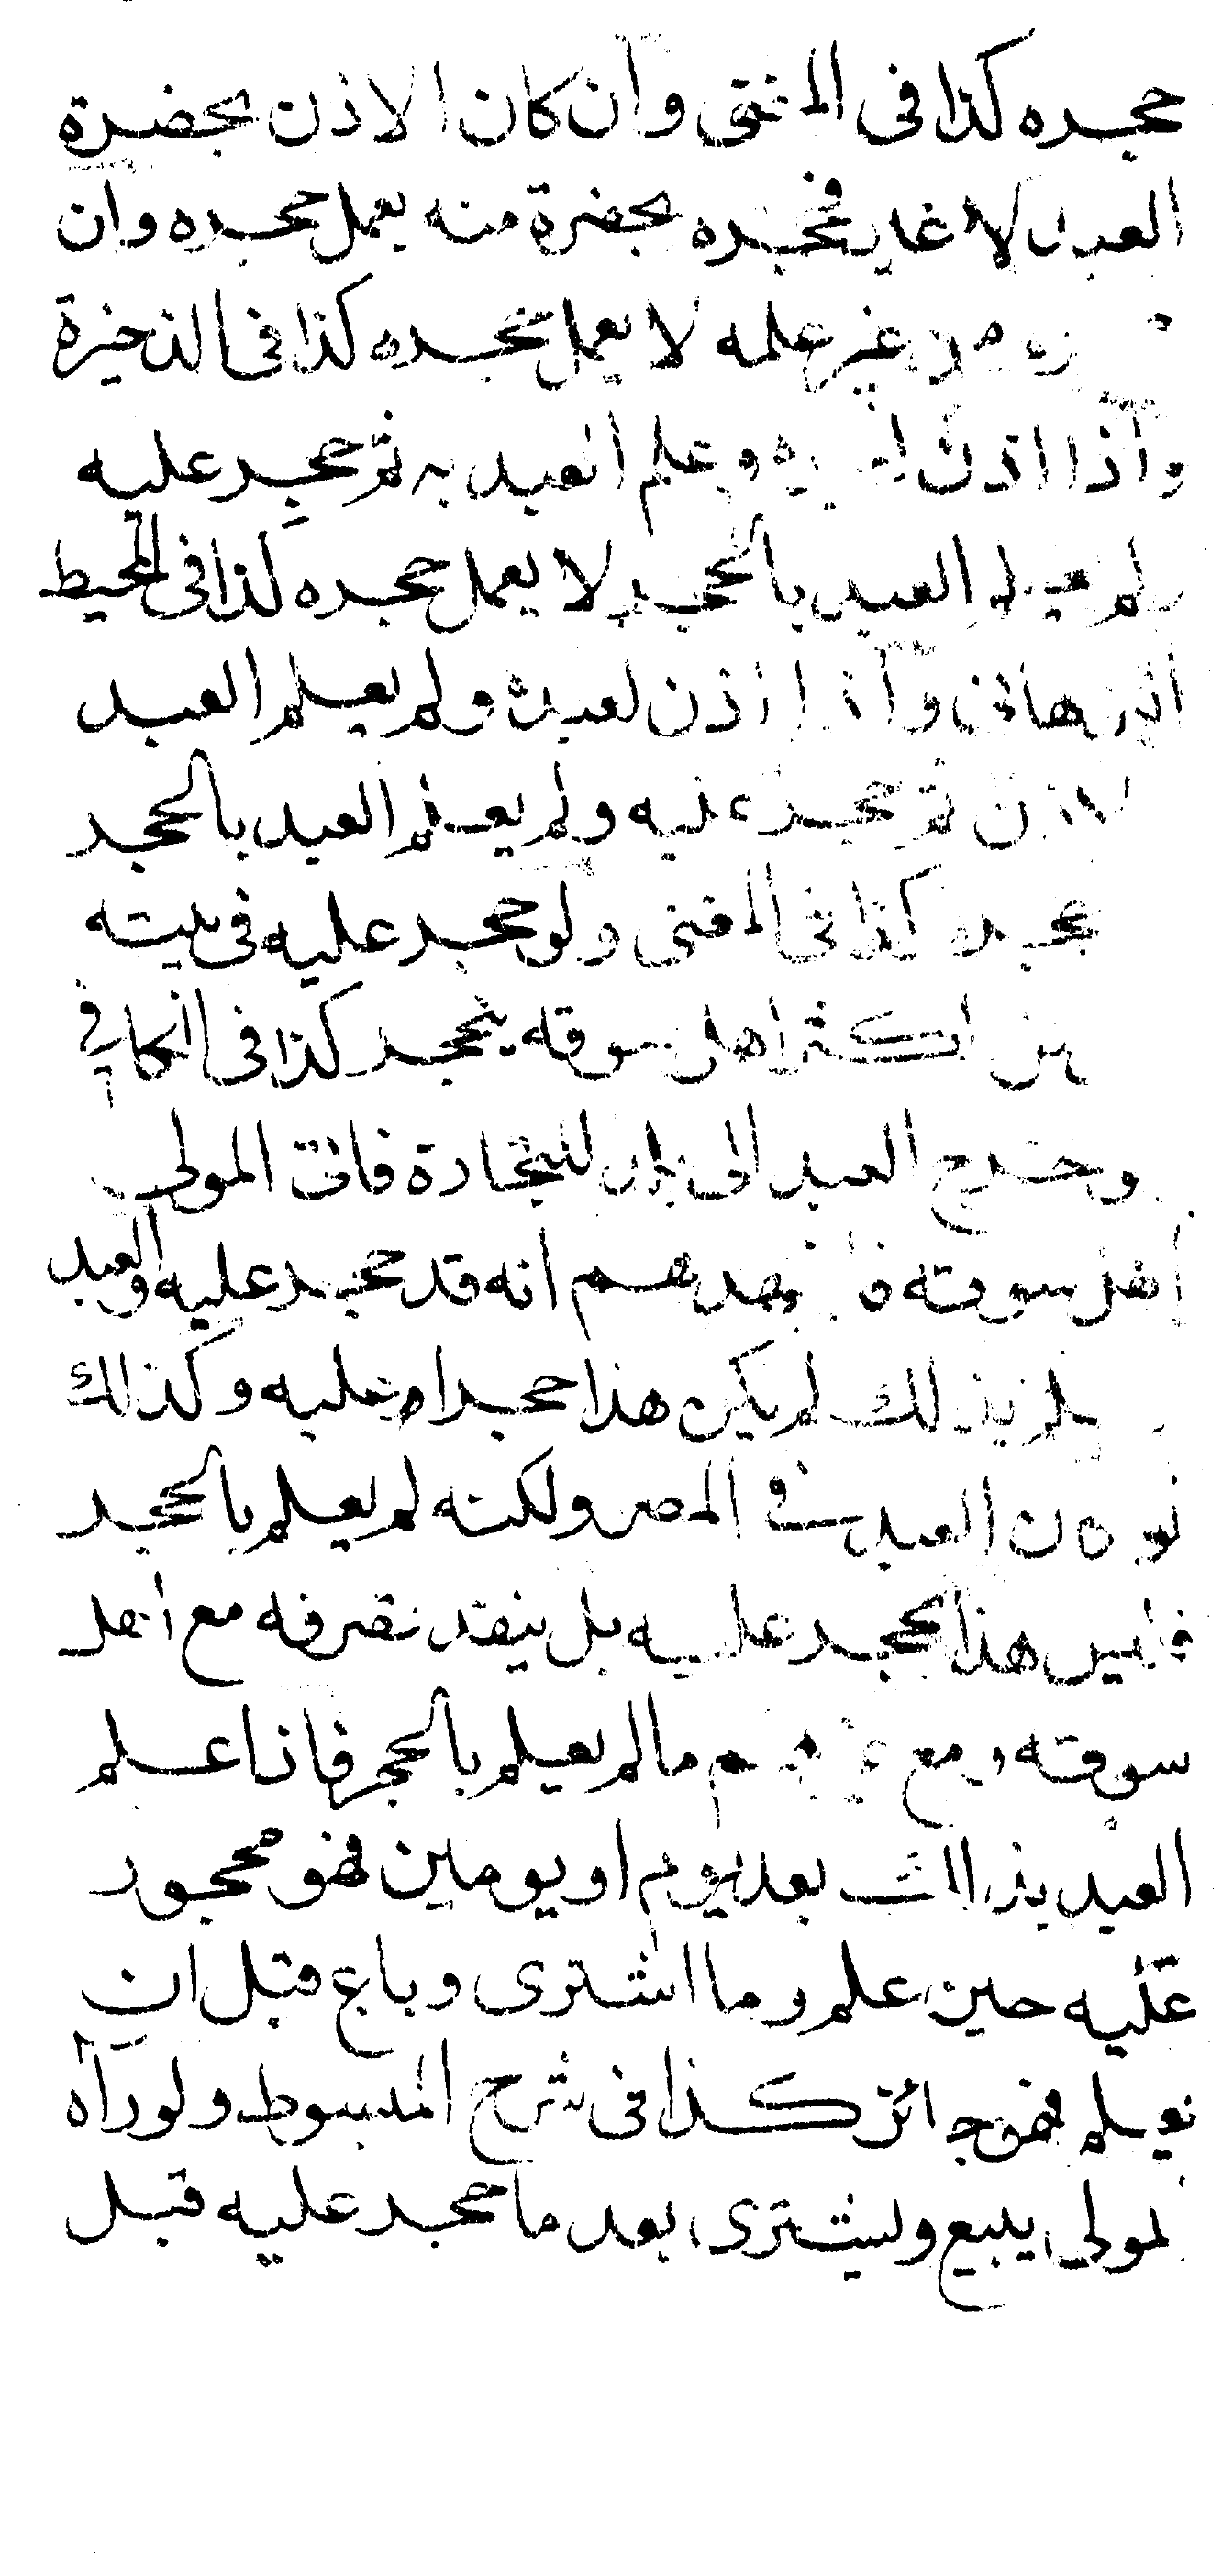 حجره كذا فى المغنى وان كان الاذن بحضرة
العبد لا غير فحجره بحضرة منه يعمل حجره وان
من غير علمه لا يعمل حجره كذا فى الذخيرة
واذا اذن وعلم العبد به ثم حجر عليه
ولم يعلم العبد بالحجر لا يعمل حجره كذا فى المحيط
البرهانى واذا اذن لعبده ولم يعلم العبد
لاذن ثم حجر عليه ولم يعلم العبد بالحجر
حجره كذا فى المغنى ولو حجر عليه فى بيته
بين اكثر اهل سوقه ينحجر كذا فى الكافى
وخرج العبد الى للتجارة فاتى المولى
اهل سوقه فا شهدهم انه قد حجر عليه والعبد
يعلم بذلك لم يكن هذا حجرا عليه وكذلك
لو كان العبد فى المصر ولكنه لم يعلم بالحجر
فليس هذا بحجر عليه بل ينفذ تصرفه مع اهل
سوقته ومع غيرهم مالم يعلم بالحجر فاذا علم
العبد بذلك بعد يوم او يومين فهو محجور
عليه حين علم وما اشترى وباع قبل ان
يعلم فهو جائز كذا فى شرح المبسوط ولو رآه
لمولى يبيع ويشترى بعد ما حجر عليه قبل